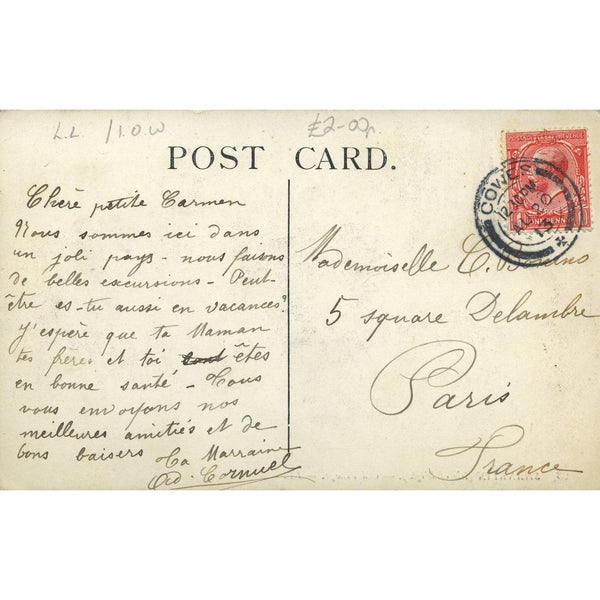 L.L /I.O.W
£2-00p.
POST CARD.
Chère petite Carmen
Nous sommes ici dans
un joli pays - nous faisons
de belles excursions - Peut-
être es-tu aussi en vacances?
J'espère que ta Maman
tes frères et toi êtes
en bonne santé - Nous
vous envoyons nos
meilleures amitiés et de
bons baisers Ta Marraine
Ad. Cornuel
COWES
12.10 PM
ONE PENNY
Mademoiselle C.
5 square Delambre
Paris
France